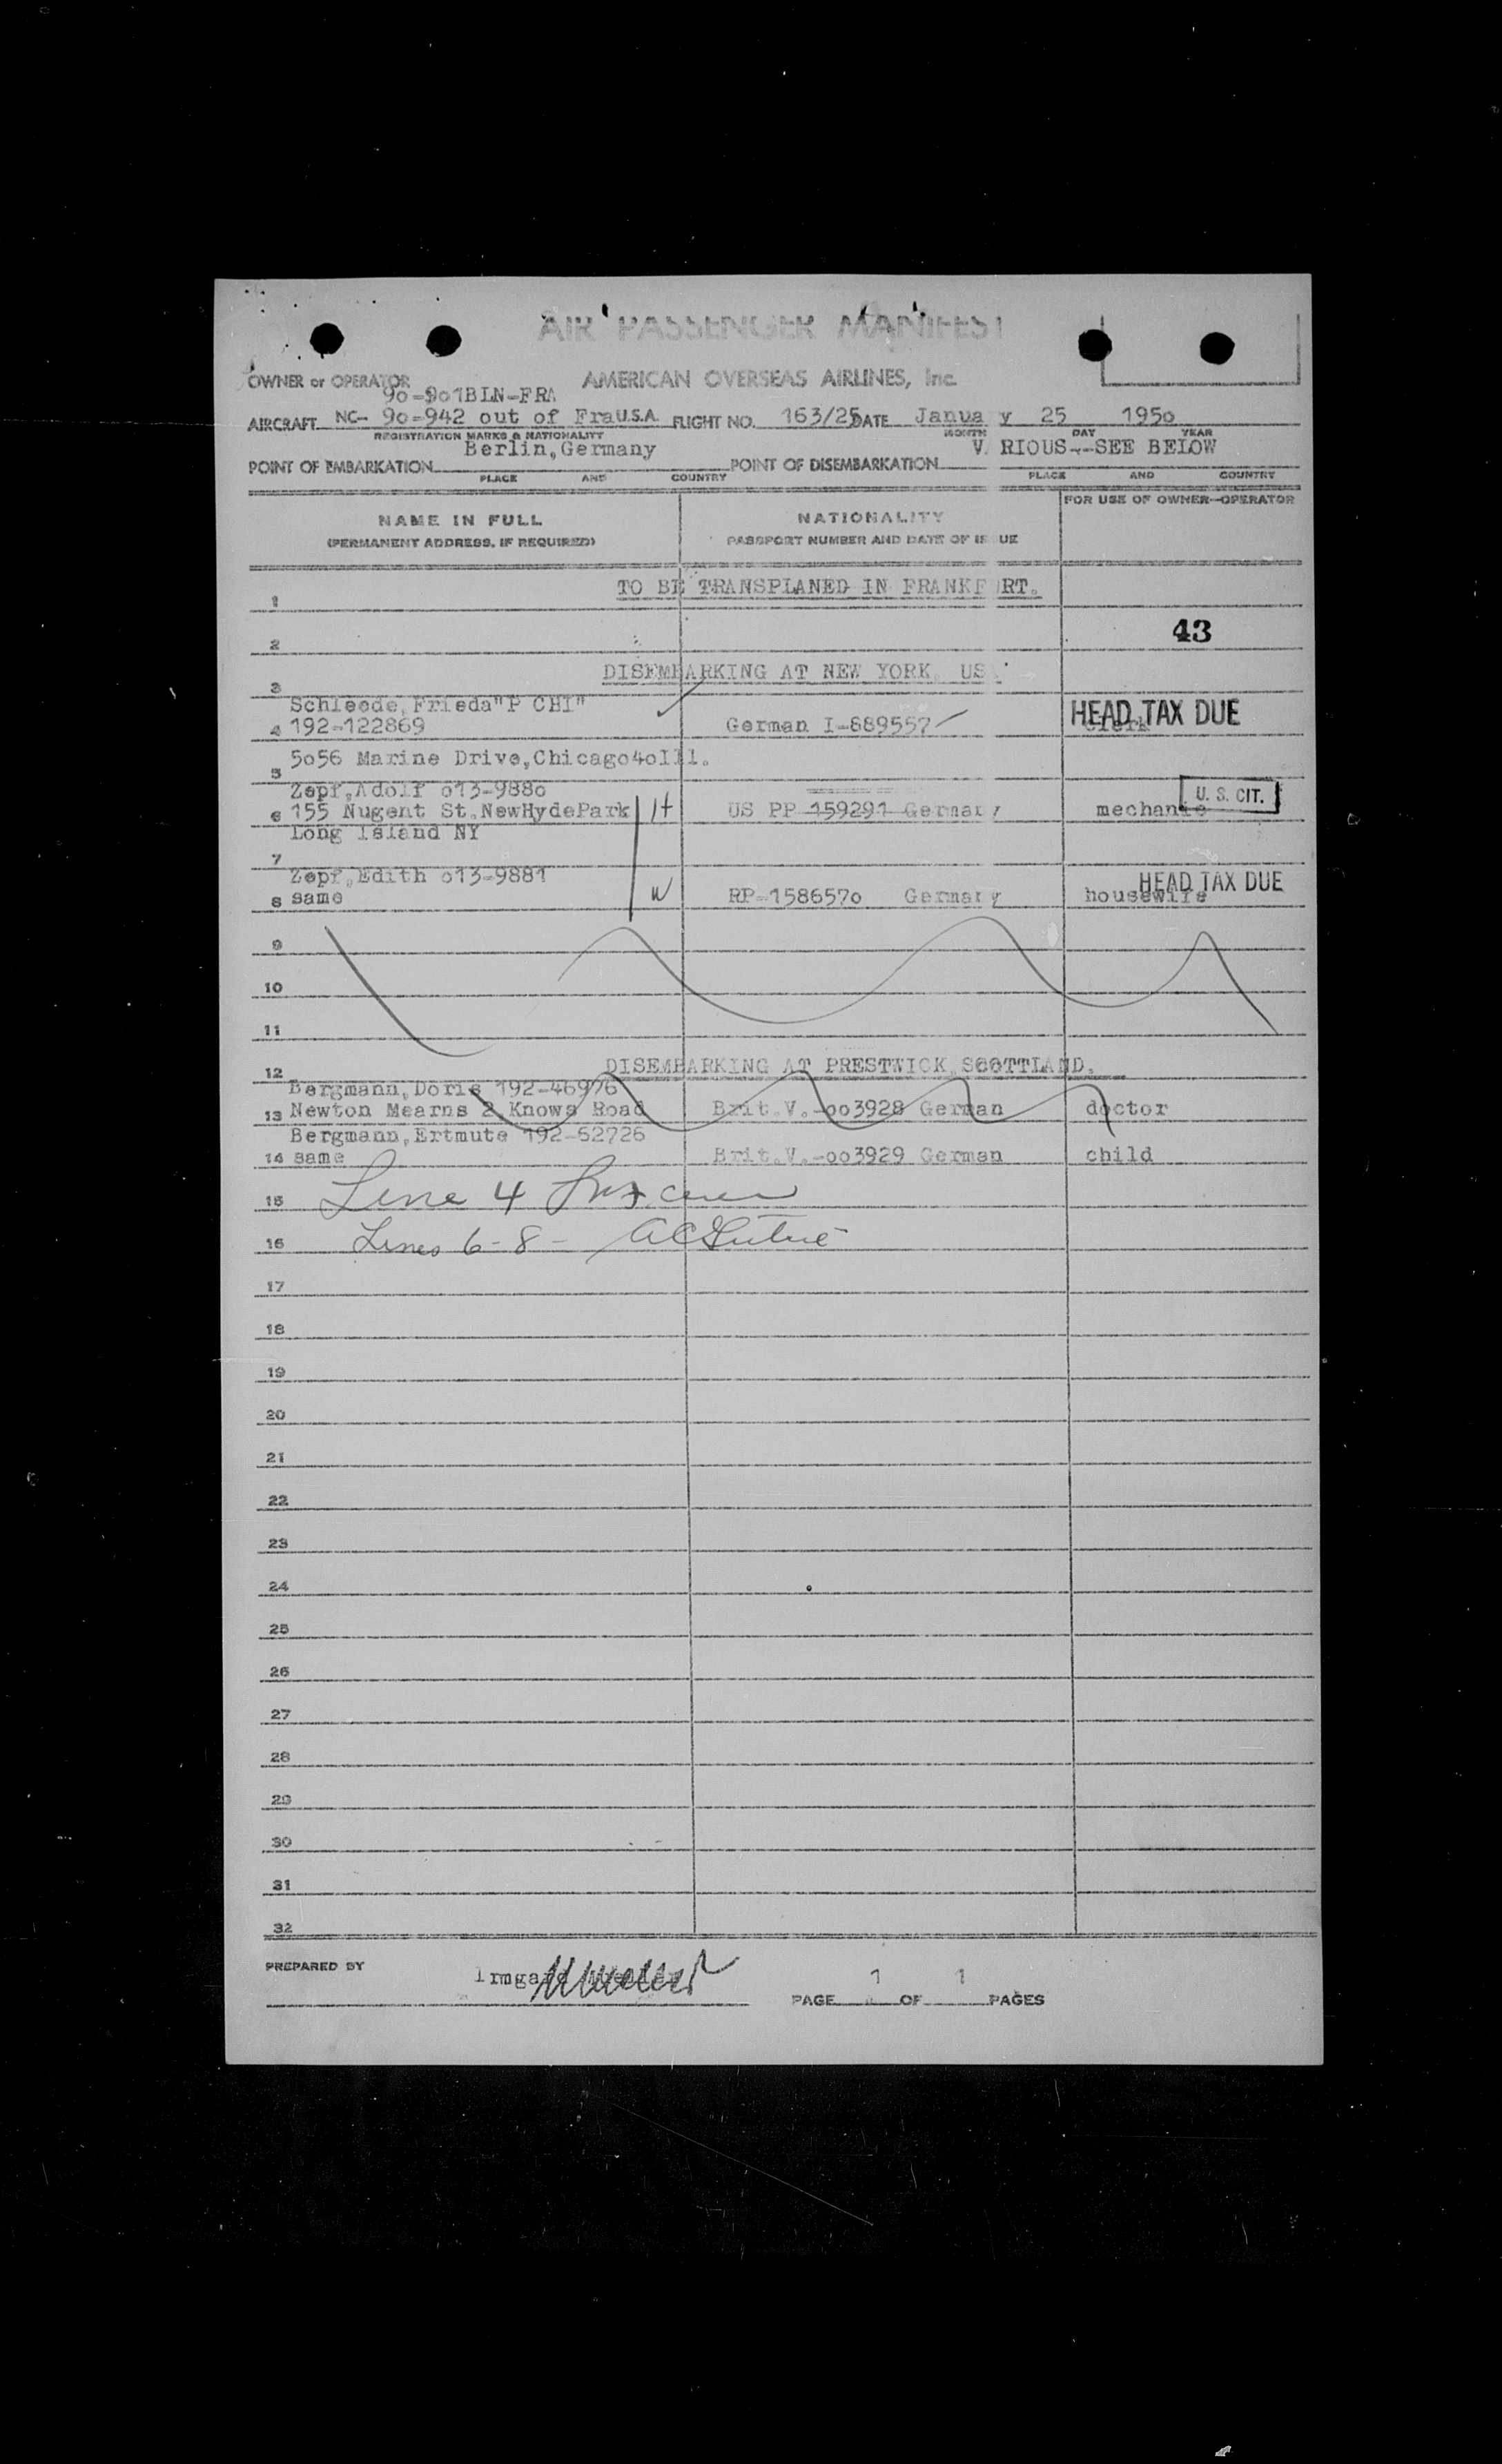 AIR PASSENGER MANIFEST
OWNER or OPERATOR AMERICAN OVERSEAS AIRLINES, Inc.
90-901BLN-FRA
AIRCRAFT NC- 9o-942 out of Fra U.S.A. FLIGHT NO. 163/25 DATE Janua y 25 195o
REGISTRATION MARKS & NATIONALITY MONTH DAY YEAR
Berlin,Germany V. RIOUS--SEE BELOW
POINT OF EMBARKATION POINT OF DISEMBARKATION
PLACE AND COUNTRY PLACE AND COUNTRY
NAME IN FULL NATIONALITY FOR USE OF OWNER-OPERATOR
(PERMANENT ADDRESS, IF REQUIRED) PASSPORT NUMBER AND DATE OF IS UE
TO BE TRANSPLANED IN FRANKF RT.
1
2 43
DISEMBARKING AT NEW YORK, US
3
Schleede,Frieda"P CHI" HEAD TAX DUE
4 192-122869 German I-889557 Clerk
5o56 Marine Drive,Chicago4oIll.
5
Zepf,Adolf o13-988o U. S. CIT.
6 155 Nugent St.NewHydePark H US PP 159291 Germany mechanic
Long Island NY
7
Zepf,Edith o13-9881 HEAD TAX DUE
8 same W RP-158657o Germany housewife
9
10
11
DISEMBARKING AT PRESTWICK,SCOTTLAND.
12
Bergmann,Doris 192-46976
13 Newton Mearns 2 Knows Road Brit.V.-oo3928 German doctor
Bergmann,Ertmute 192-52726
14 same Brit.V.-oo3929 German child
15 Line 4
16 Lines 6-8-
17
18
19
20
21
22
23
24
25
26
27
28
29
30
31
32
PREPARED BY Irmgard
PAGE 1 OF 1 PAGES